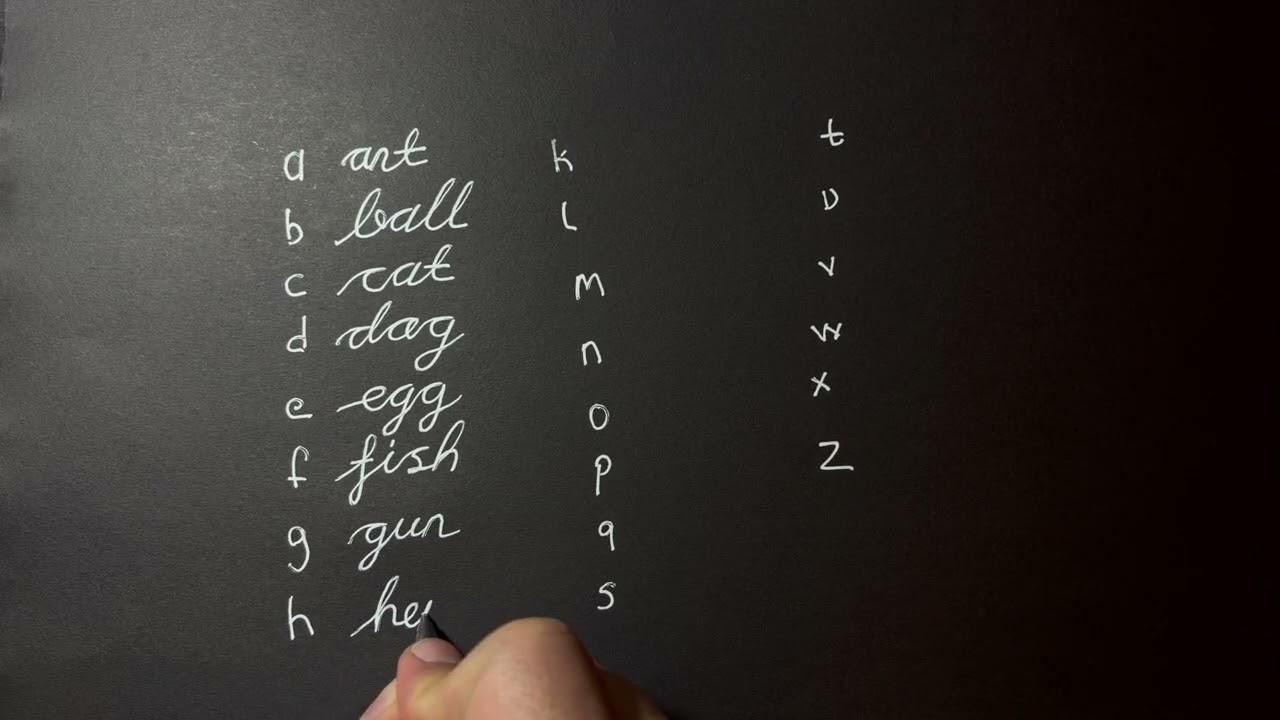 a ant
b ball
c cat
d dog
e egg
f fish
g gun
h he
k
l
m
n
o
p
q
s
t
u
v
w
x
z